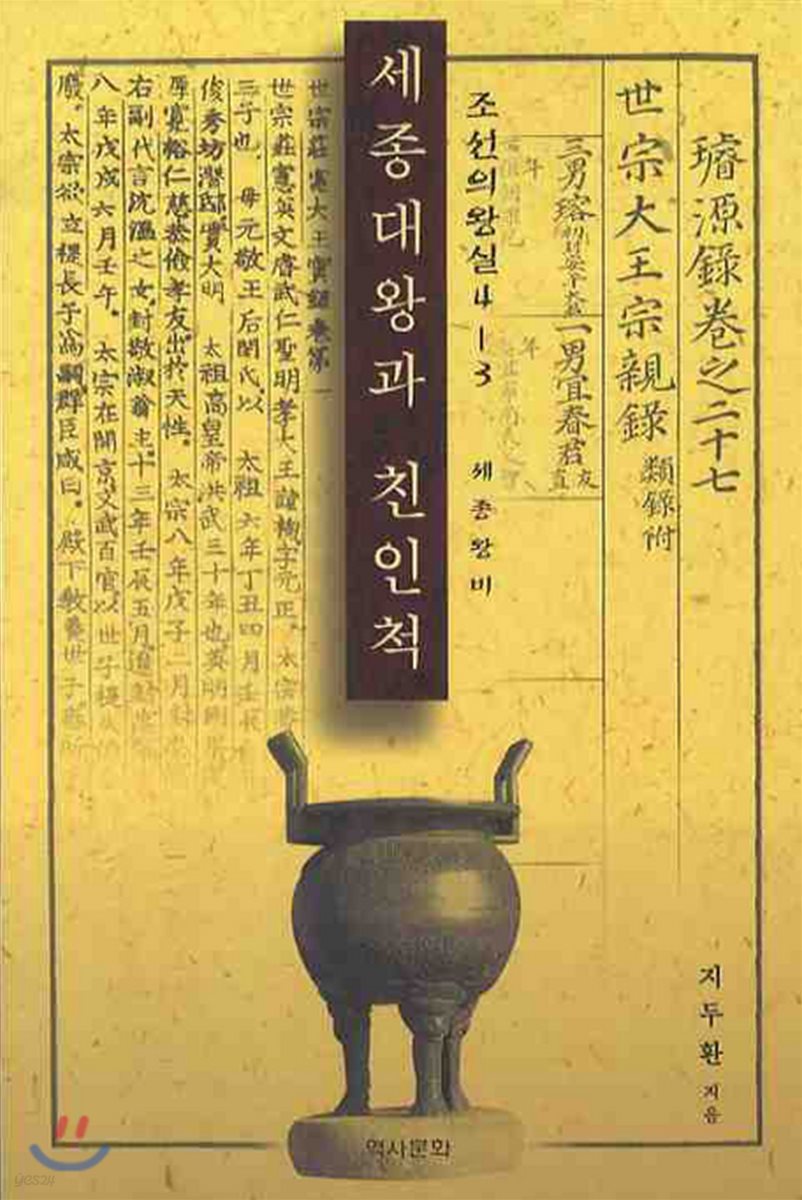 璿源錄卷之二十七
世宗大王宗親錄 類錄附
三男瑢
一男宜春君 友直
조선의 왕실 4-3 세종왕비
세종대왕과 친인척
世宗莊憲大王實錄卷第一
世宗莊憲英文睿武仁聖明孝大王諱祹字元正。太宗
三子也。母元敬王后閔氏以 太祖六年丁丑四月壬辰
俊秀坊潛邸實大明 太祖高皇帝洪武三十年也英明剛
厚寬裕仁慈恭儉孝友出於天性。太宗八年戊子二月
右副代言沈溫之女封敬淑翁主。十三年壬辰五月
八年戊戌六月壬午。太宗在開京文武百官以世子禔
廢。太宗欲立禔長子爲嗣群臣咸曰。殿下敎養世子
지두환 지음
역사문화
yes24